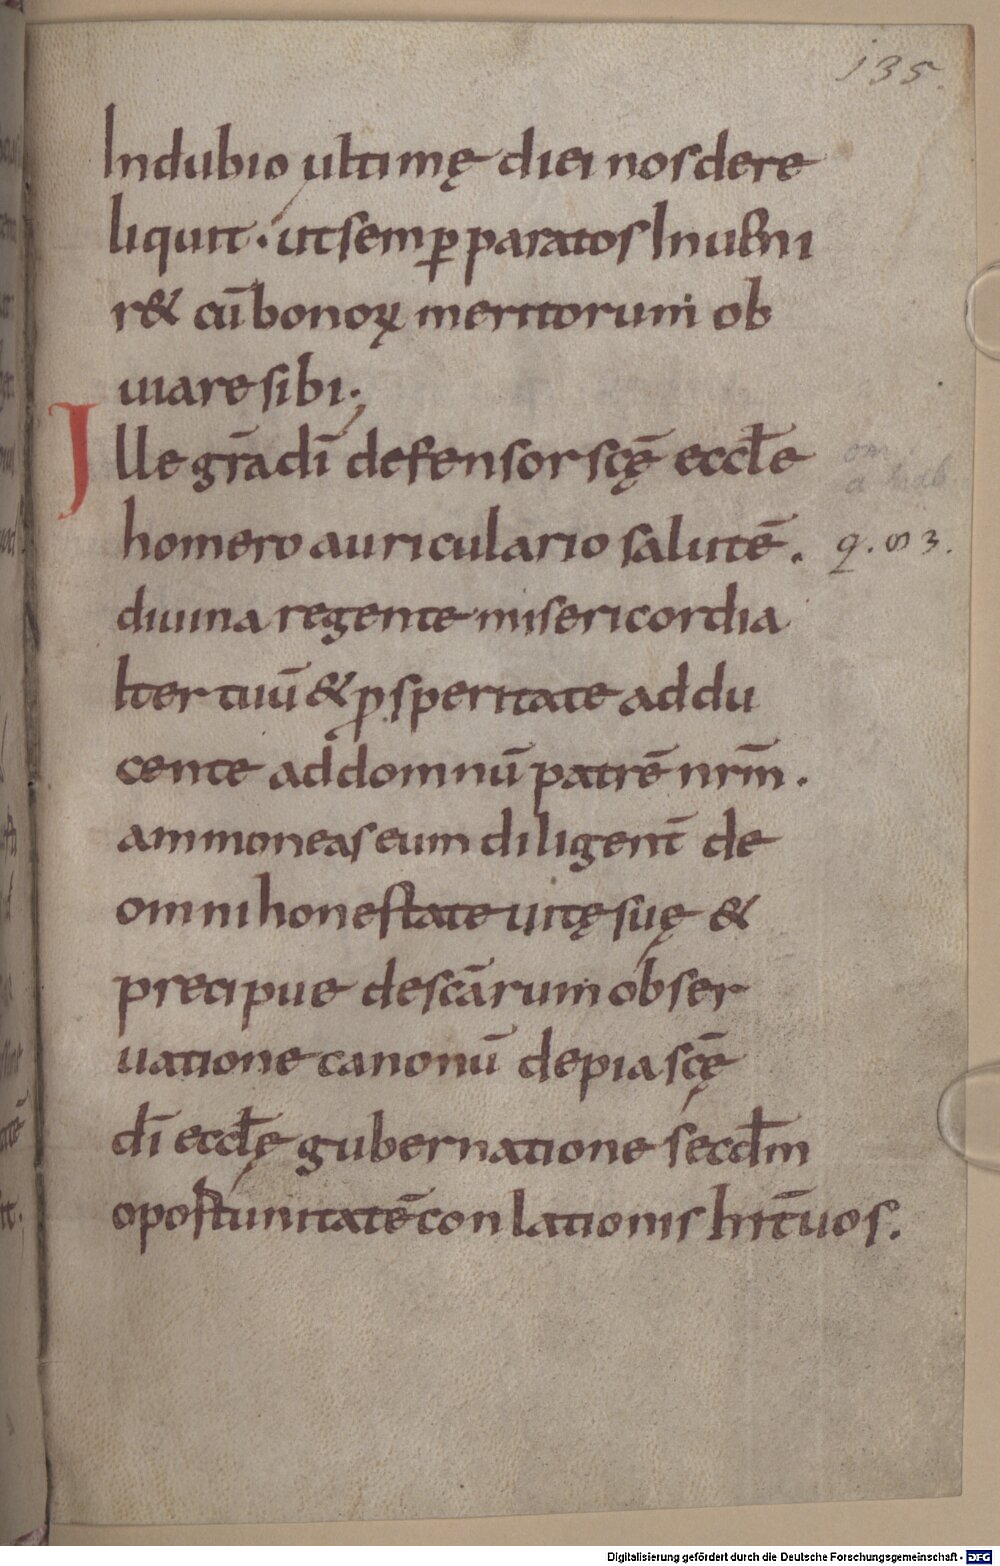 135.
In dubio ultimę diei nos dere
liquit · ut semꝑ paratos Inueni
r& cū bonoꝝ meritorum ob
uiare sibi;
Ille gr̄a dī defensor scę̄ eccl̄e
homero auriculario salutē.
q. m 3.
diuina regente misericordia
Iter tuū & ꝓsperitate addu
cente ad domnū patrē nrm̄.
ammoneas eum diligent̄ de
omni honestate uitę suę &
precipue de scārum obser
uatione canonū de pia scę̄
dī eccl̄ę gubernatione secdm̄
oportunitatē conlationis Int̄ uos.
Digitalisierung gefördert durch die Deutsche Forschungsgemeinschaft - DFG